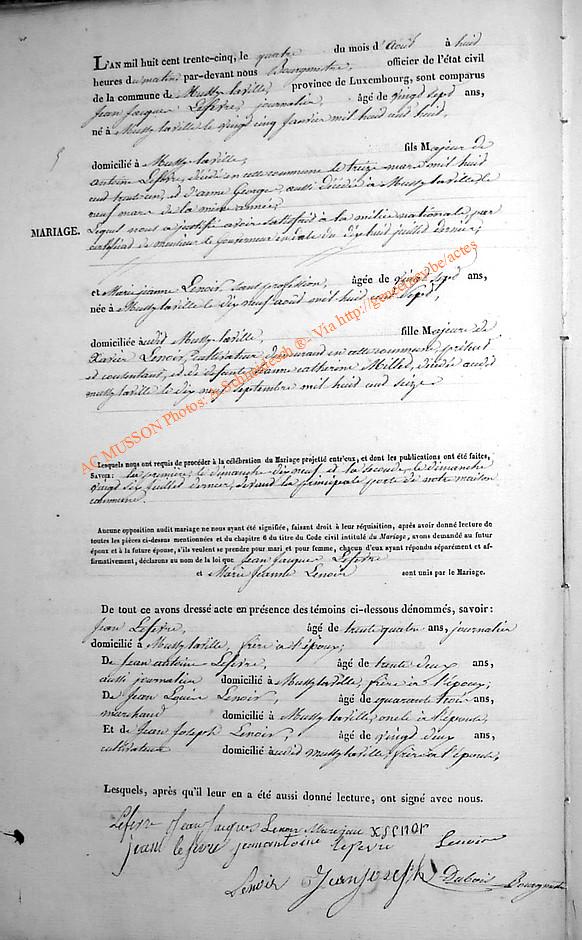 L'AN mil huit cent trente-cinq, le quatre du mois d'Août à huit
heures du matin par-devant nous Bourgmestre, officier de l'état civil
de la commune de Mussy la ville, province de Luxembourg, sont comparus
Jean Jacques Lefevre, journalier, âgé de vingt sept ans,
né à Mussy la ville le vingt cinq janvier mil huit cent huit,
domicilié à Mussy la ville, fils Majeur de
antoine Lefevre, décédé en cette commune le treize mars mil huit
cent trente un, et d'anne George, aussi décédée à Mussy la ville le
neuf mars de la même année,
MARIAGE.
Lequel nous a justifié avoir satisfait à la milice nationale, par
certificat de monsieur le Gouverneur en date du dix huit juillet dernier;
et Marie jeanne Lenoir, sans profession, âgée de vingt sept ans,
née à Mussy la ville le dix neuf août mil huit cent sept,
domiciliée audit Mussy la ville, fille Majeure de
Xavier Lenoir, cultivateur, demeurant en cette commune, présent
et consentant, et de défunte jeanne catherine Millet, décédée audit
mussy la ville le dix neuf septembre mil huit cent seize
Lesquels nous ont requis de procéder à la célébration du Mariage projetté entr'eux, et dont les publications ont été faites,
SAVOIR: La première, le dimanche dix neuf et la seconde, le dimanche
vingt six juillet dernier, devant la principale porte de notre maison
commune.
Aucune opposition audit mariage ne nous ayant été signifiée, faisant droit à leur réquisition, après avoir donné lecture de
toutes les pièces ci-dessus mentionnées et du chapitre 6 du titre du Code civil intitulé du Mariage, avons demandé au futur
époux et à la future épouse, s'ils veulent se prendre pour mari et pour femme, chacun d'eux ayant répondu séparément et af-
firmativement, déclarons au nom de la loi que Jean Jacques Lefevre
et Marie Jeanne Lenoir sont unis par le Mariage.
De tout ce avons dressé acte en présence des témoins ci-dessous dénommés, savoir:
Jean Lefevre, âgé de trente quatre ans, journalier
domicilié à Mussy la ville, frère à l'époux;
De Jean antoine Lefevre, âgé de trente deux ans,
aussi journalier domicilié à Mussy la ville, frère à l'époux;
De Jean Louis Lenoir, âgé de quarante trois ans,
marchand domicilié à Mussy la ville, oncle à l'épouse,
Et de Jean Joseph Lenoir, âgé de vingt deux ans,
cultivateur domicilié audit mussy la ville, frère à l'épouse,
Lesquels, après qu'il leur en a été aussi donné lecture, ont signé avec nous.
Lefevre Jean Jacques Lenoir Marie jeanne x lenoir
jean lefevre jean antoine lefevre Lenoir
Lenoir Jean Joseph Dubois Bourgmestre
AC MUSSON Photos: © Schneidesch ® - Via http://geneanexy.be/actes